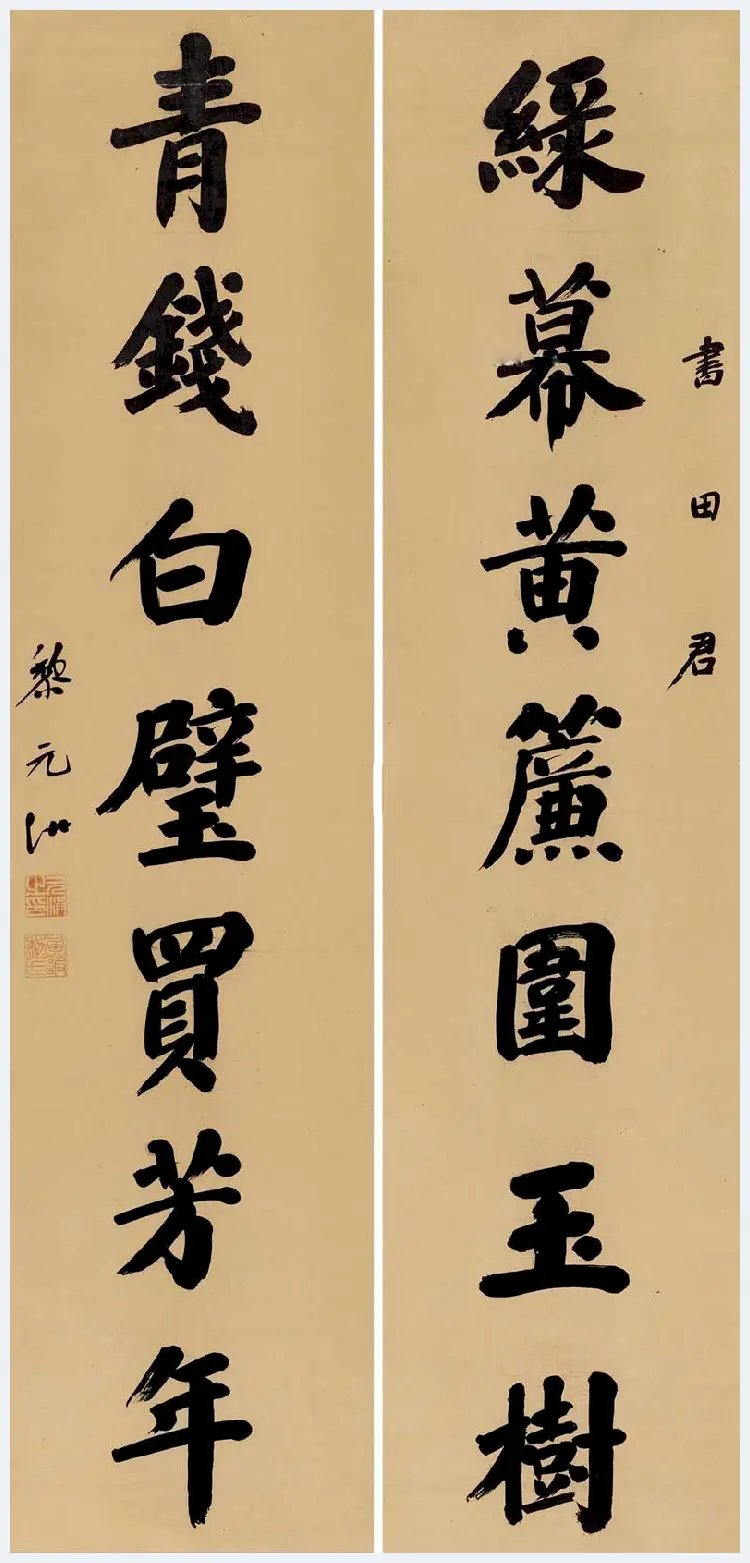 書田君
綵幕黄簾圍玉樹
青錢白璧買芳年
黎元洪